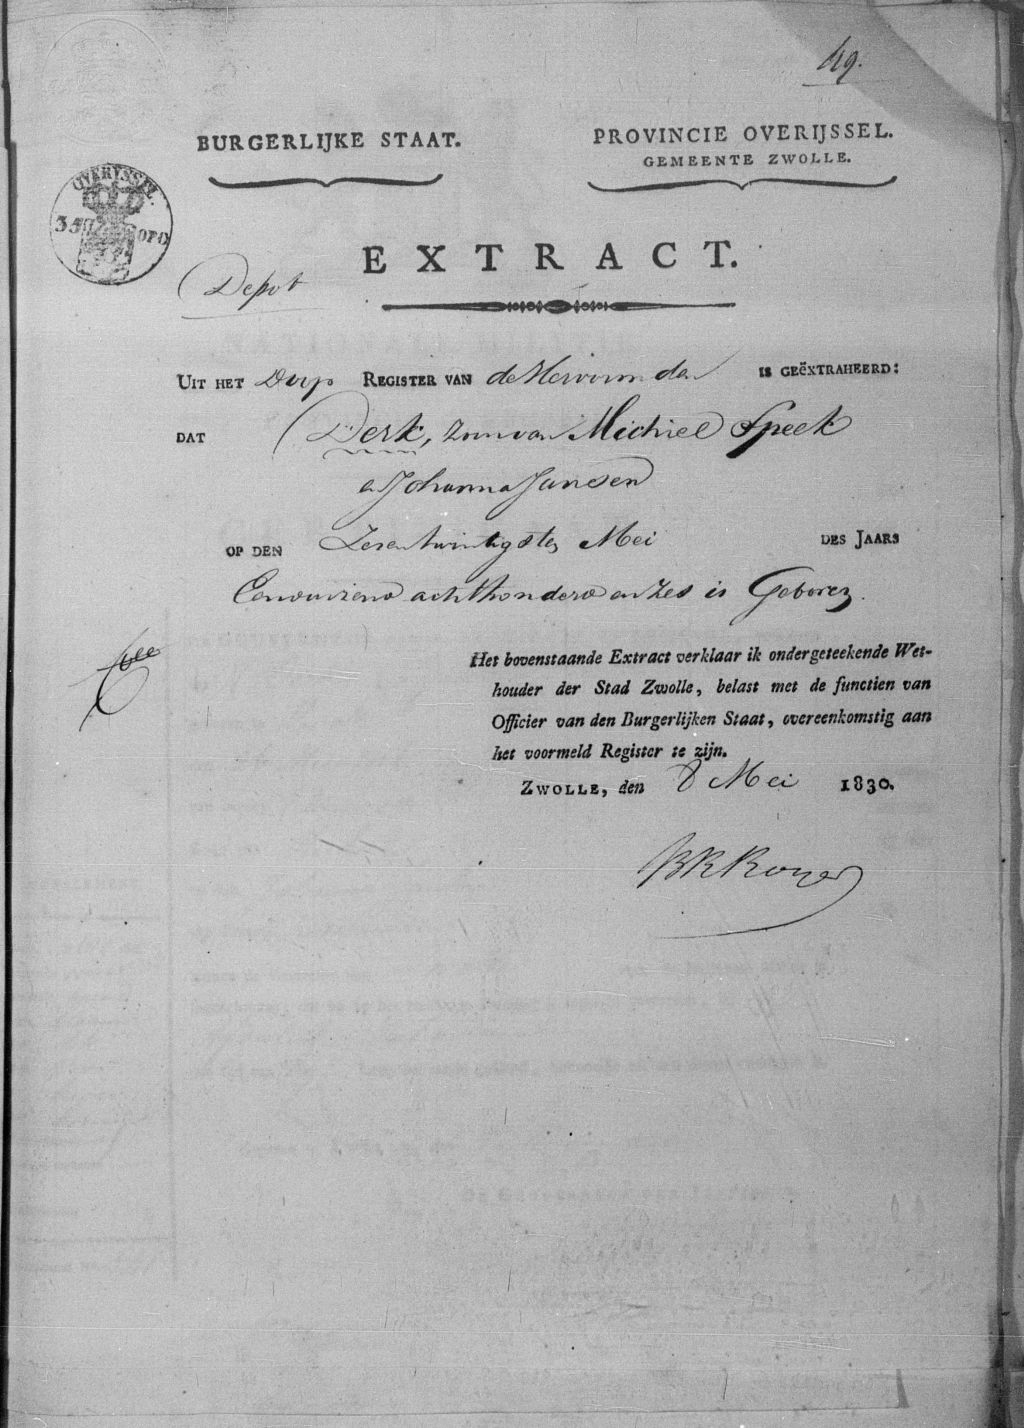 49.
BURGERLIJKE STAAT.
PROVINCIE OVERIJSSEL.
GEMEENTE ZWOLLE.
OVERYSSEL.
35
OPC
EXTRACT.
Depot
UIT HET Doop REGISTER VAN de Hervormden IS GEËXTRAHEERD:
DAT Derk, zoon van Michiel Speek
en Johanna Jansen
OP DEN Zesentwintigsten Mei DES JAARS
Eenduizend achthonderd en Zes is Geboren.
Het bovenstaande Extract verklaar ik ondergeteekende Wet-
houder der Stad Zwolle, belast met de functien van
Officier van den Burgerlijken Staat, overeenkomstig aan
het voormeld Register te zijn.
ZWOLLE, den 8 Mei 1830.